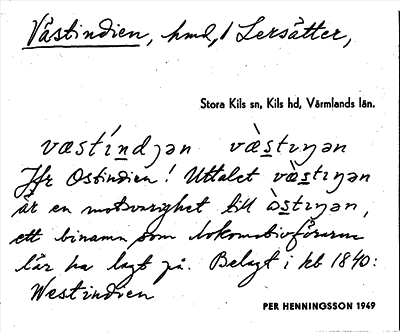 Västindien, hmd, i Lersätter,
Stora Kils sn, Kils hd, Värmlands län.
væstíndjən væ̀stɪŋən
Jfr Ostindien! Uttalet væ̀stɪŋən
är en motsvarighet till òstɪŋən,
ett binamn som lokomotivförarna
lär ha lagt på. Belagt i kb 1840:
Westindien
PER HENNINGSSON 1949